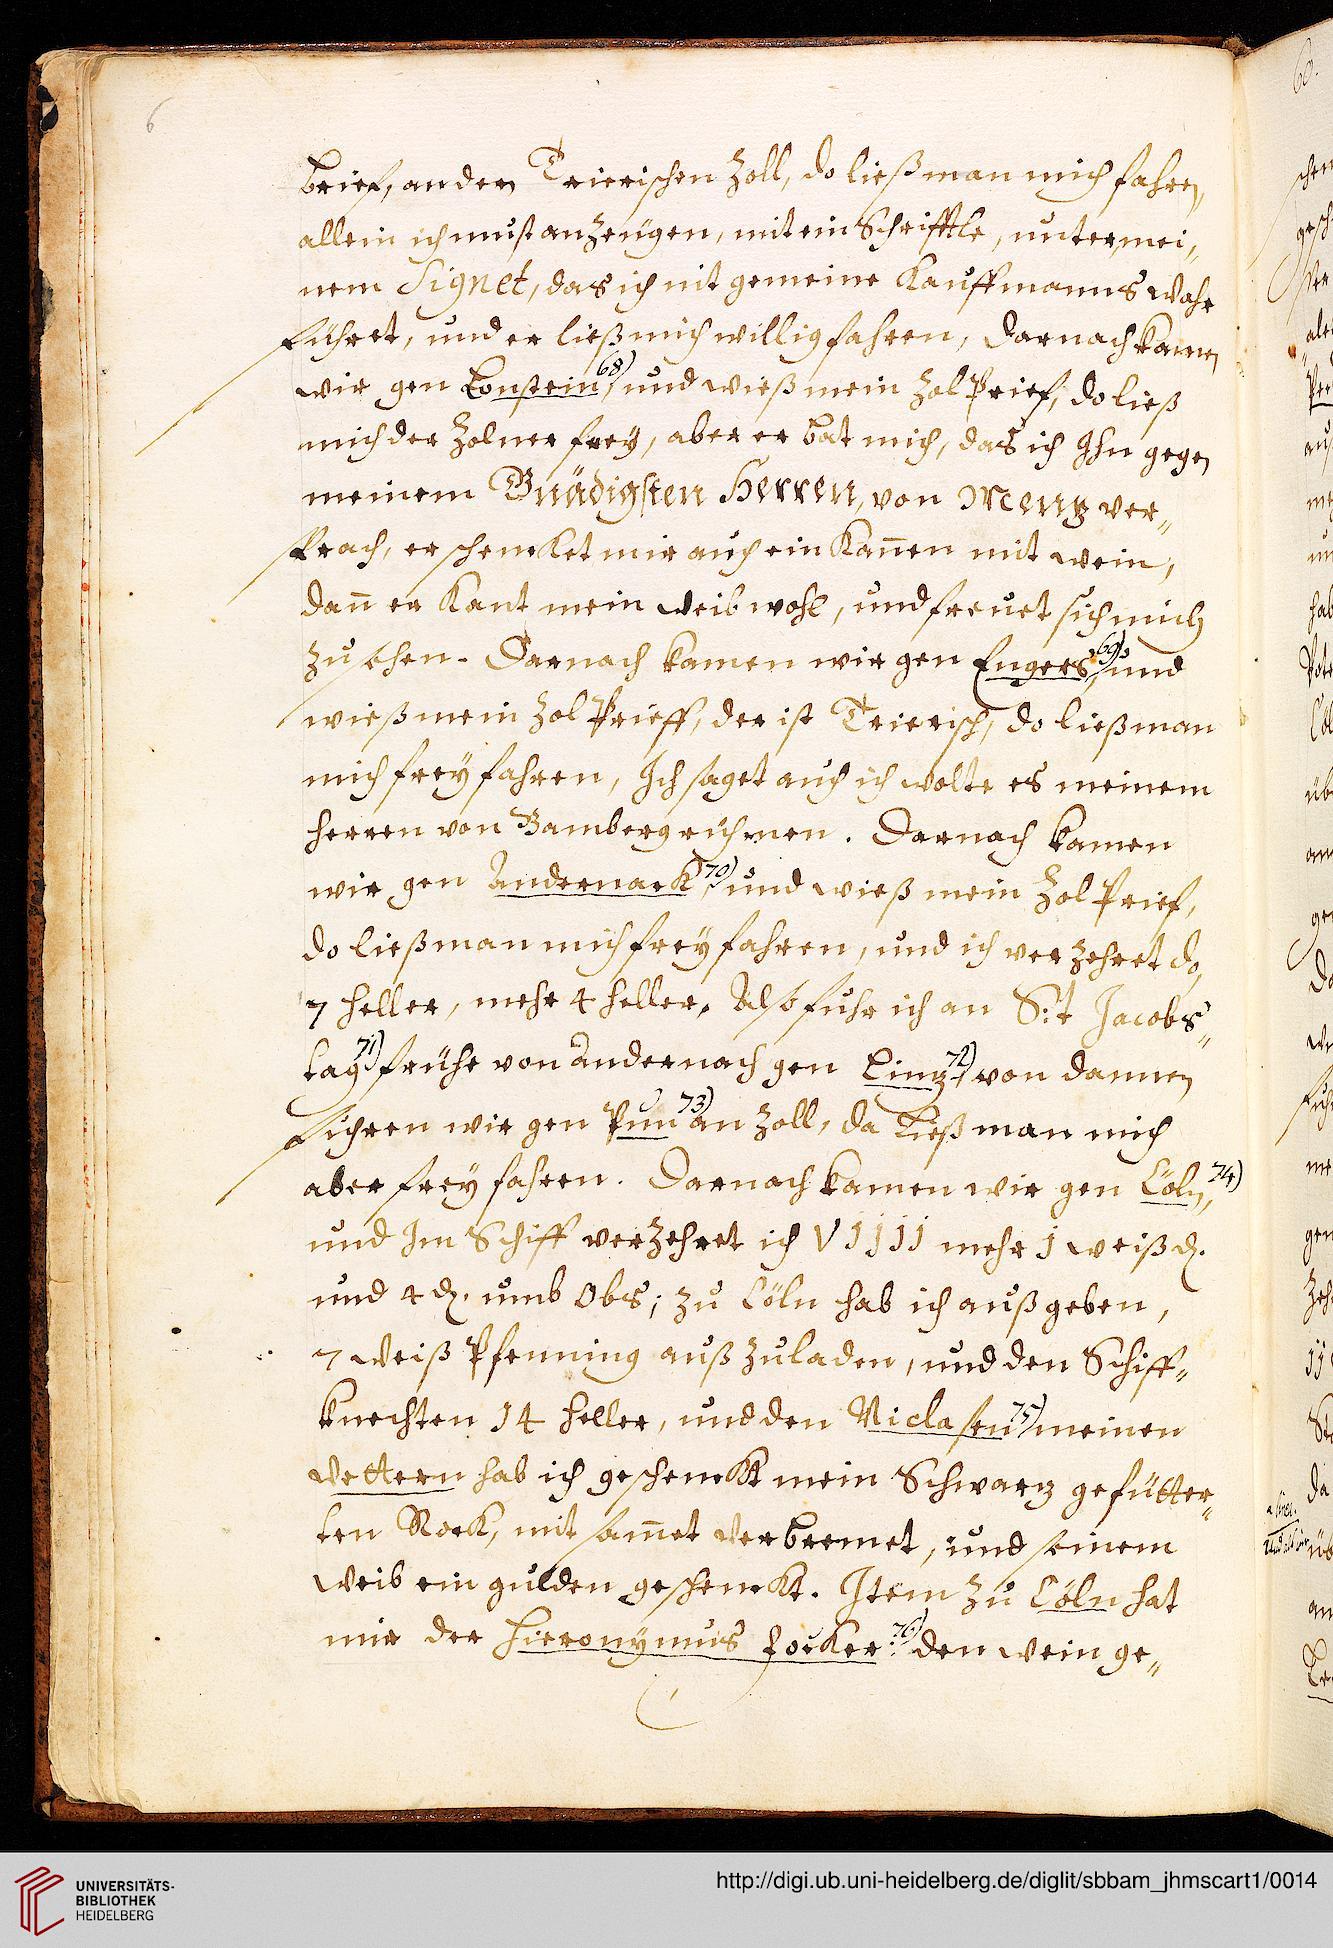 6
brief, an den Trierischen Zoll, do ließ man mich fahren,
allein ich must anzeugen, mit ein Schrifftle, unter mei„
nem Signet, das ich nit gemeine Kauffmanns Wahr
führet, und er ließ mich willig fahren, Darnach kamen
wir gen Lonstein, 68) und wieß mein Zol Prief, do ließ
mich der Zolner frey, aber er bat mich, das ich Ihn gegen
meinem Gnädigsten Herren, von Mentz ver„
sprach, er schencket mir auch ein Kañen mit wein,
dañ er kant mein weib wohl, und freuet sich mich
zu sehen. Darnach kamen wir gen Engers, 69) und
wieß mein Zol Prieff, der ist Trierisch, do ließ man
mich frey fahren, Ich saget auch ich wolte es meinem
herren von Bamberg rühmen. Darnach kamen
wir gen Andernack, 70) und wieß mein Zol Prief,
do ließ man mich frey fahren, und ich verzehret do,
7 heller, mehr 4 heller. Also fuhr ich an S:t Jacobs„
tag 71) frühe von Andernach gen Linz, 72) von dannen
führen wir gen Pun 73) an Zoll, da ließ man mich
aber frey fahren. Darnach kamen wir gen Cöln, 74)
und Im Schiff verzehret ich VJJJJ mehr J weiß d.
und 4 d. umb Obs; zu Cöln hab ich außgeben,
7 weiß Pfenning auß zuladen, und den Schiff„
knechten 14 heller, und den Niclasen 75) meinen
Vettern hab ich geschenckt mein Schwartz gefütter„
ten Rock, mit sam̃et verbremet, und seinem
Weib ein gulden geschenckt. Item zu Cöln hat
mir der Hieronymus Focker 76) den wein ge„
UNIVERSITÄTS-
BIBLIOTHEK
HEIDELBERG
http://digi.ub.uni-heidelberg.de/diglit/sbbam_jhmscart1/0014